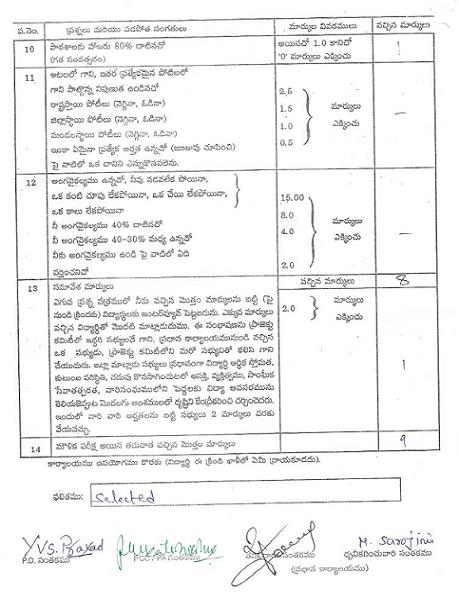 వ.నెం. ప్రశ్నలు మరియు వడపోత సంగతులు మార్కుల వివరములు వచ్చిన మార్కులు
10 పాఠశాలకు హాజరు 80% దాటినచో అయినచో 1.0 కానిచో 1
(గత సంవత్సరం) '0' మార్కులు ఎక్కించు
11 ఆటలలో గాని, ఇతర ప్రత్యేకమైన పోటిలలో
గాని పాల్గొన్న నిపుణుత ఉండినచో 2.5
రాష్ట్రస్థాయి పోటీలు (నెగ్గినా, ఓడినా) 1.5 మార్కులు —
జిల్లాస్థాయి పోటీలు (నెగ్గినా, ఓడినా) 1.0 ఎక్కించు
మండలస్థాయి పోటీలు (నెగ్గినా, ఓడినా) 0.5
ఇంకా ఏమైనా ప్రత్యేక అర్హత ఉన్నచో (ఋజువు చూపించి)
పై వాటిలో ఒక దానిని ఎన్నుకొనవలెను.
12 అంగవైకల్యము ఉన్నచో, నీవు నడవలేక పోయినా,
ఒక కంటి చూపు లేకపోయినా, ఒక చేయి లేకపోయినా, 15.00
ఒక కాలు లేకపోయినా 8.0 మార్కులు
నీ అంగవైకల్యము 40% దాటినచో 4.0 ఎక్కించు —
నీ అంగవైకల్యము 40-30% మధ్య ఉన్నచో
నీకు అంగవైకల్యము ఉండి పై వాటిలో ఏది 2.0
వర్తించనిచో
13 సమావేశ మార్కులు వచ్చిన మార్కులు 8
ఎగువ ప్రశ్న పత్రములో నీకు వచ్చిన మొత్తం మార్కులను బట్టి (పై 2.0 మార్కులు
నుండి క్రిందకు) విద్యార్థులకు ఇంటర్‌వ్యూవ్ పెట్టబడును. ఎక్కువ మార్కులు ఎక్కించు
వచ్చిన విద్యార్థితో మొదటి మాట్లాడుదుము. ఈ సంభాషణను ప్రాజెక్టు
కమిటీలో ఇద్దరి సభ్యులచే గాని, ప్రధాన కార్యాలయమునుండి వచ్చిన
ఒక సభ్యుడు, ప్రాజెక్టు కమిటీలోని మరో సభ్యునితో కలిసి గాని
చేయుదురు. ఇట్లా మాట్లాడు సభ్యులు ప్రధానంగా విద్యార్థి ఆర్థిక స్తోమత,
కుటుంబ పరిస్థితి, చదువు కొనసాగించుటలో ఆసక్తి, వ్యక్తిత్వము, సాంఘిక 1
సేవాతత్పరత, వారినంఘములోని పెద్దలకు విద్యా అవసరమును
తెలియజెప్పుట మొదలగు అంశములలో దృష్టిని కేంద్రీకరించి చర్చించెదరు.
ఇందులో వారి వారి అర్హతలను బట్టి సభ్యులు 2 మార్కులు వరకు
వేయవచ్చు.
14 మౌలిక పరీక్ష అయిన తరువాత వచ్చిన మొత్తం మార్కులు 9
కార్యాలయము ఉపయోగము కొరకు (విద్యార్థి ఈ క్రింది ఖాళీలో ఏమీ వ్రాయకూడదు).
ఫలితము: Selected
YVS. Prasad M. Sarojini
P.D. సంతకము PCO / PA సంతకము సంతకము ధృవీకరించువారి సంతకము
(ప్రధాన కార్యాలయము)